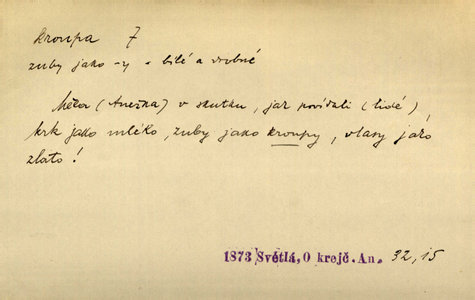 kroupa 7
zuby jako -y = bílé a drobné
Měla (Anežka) v skutku, jak povídali (lidé),
krk jako mléko, zuby jako kroupy, vlasy jako
zlato!
1873 Světlá, O krejč. An. 32, 15